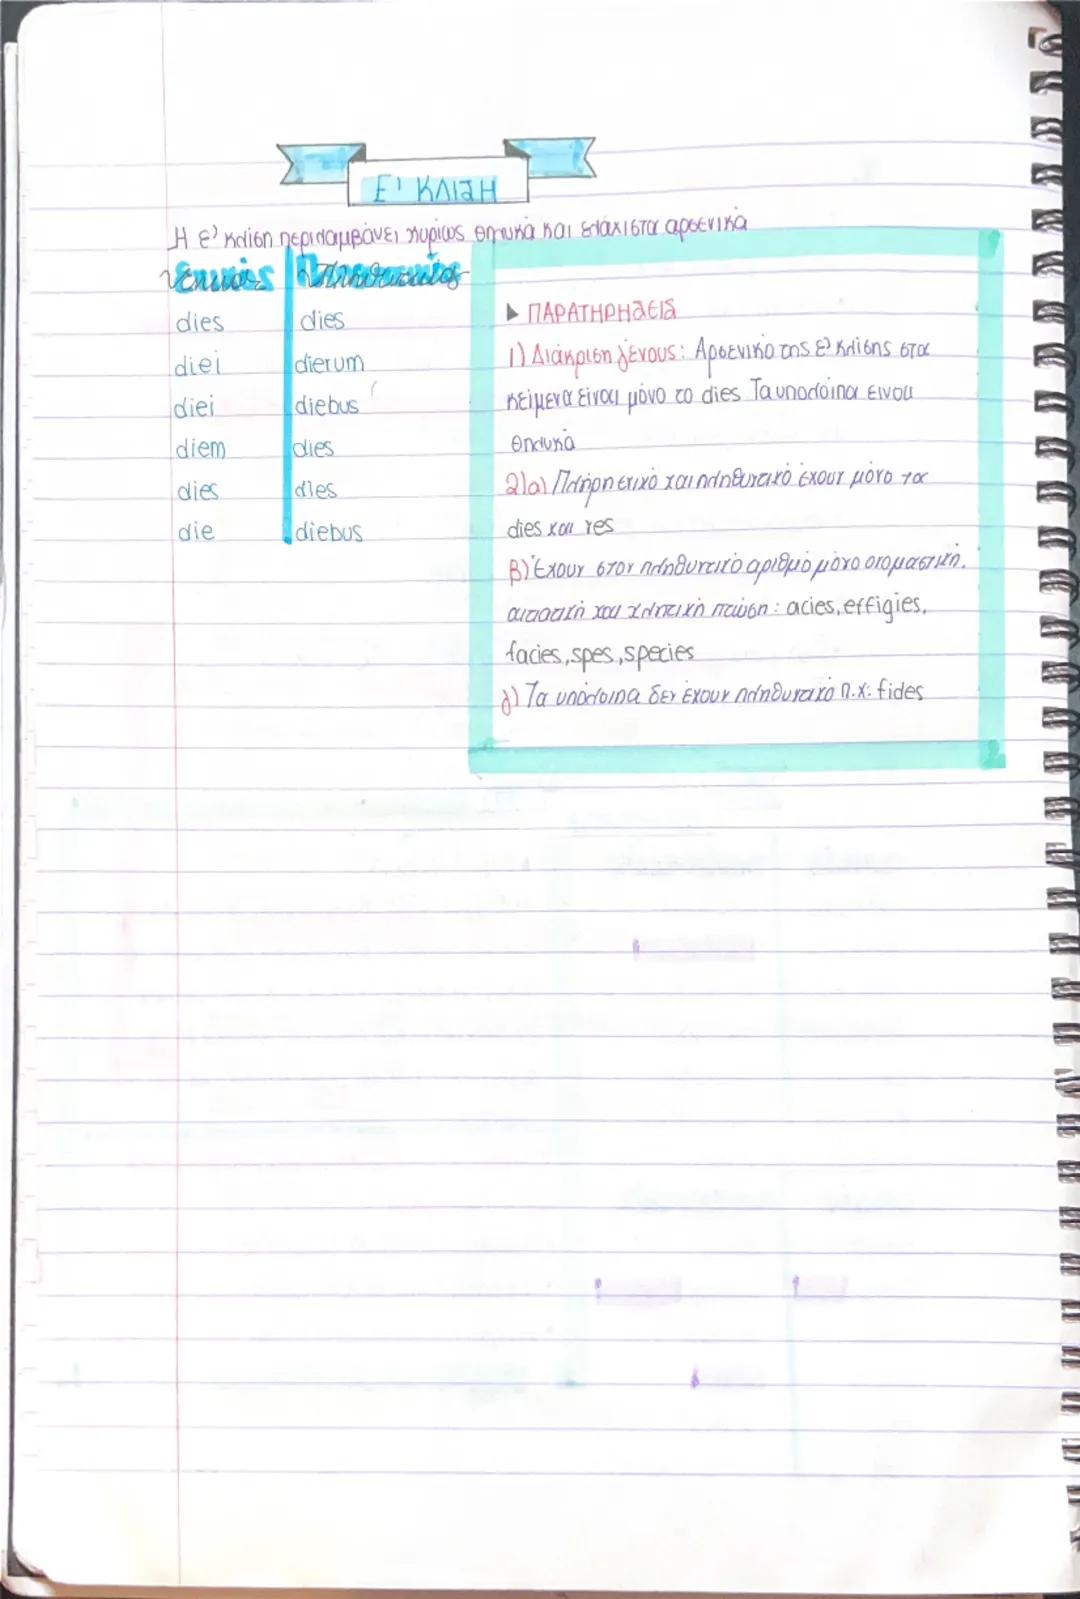 Ε' ΚΛΙΣΗ
Η ε' κλίση περιλαμβάνει κυρίως θηλυκά και ελάχιστα αρσενικά
Ενικός Πληθυντικός
dies dies
diei dierum
diei diebus
diem dies
dies dies
die diebus
► ΠΑΡΑΤΗΡΗΣΕΙΣ
1) Διάκριση γένους: Αρσενικό της ε' κλίσης στα
κείμενα είναι μόνο το dies. Τα υπόλοιπα ειναι
θηλυκά
2)α) Πλήρη ενικό και πληθυντικό έχουν μόνο τα
dies και res
β) Έχουν στον πληθυντικό αριθμό μόνο ονομαστική,
αιτιατική και κλητική πτώση: acies, effigies,
facies, spes, species
γ) Τα υπόλοιπα δεν έχουν πληθυντικό π.χ: fides